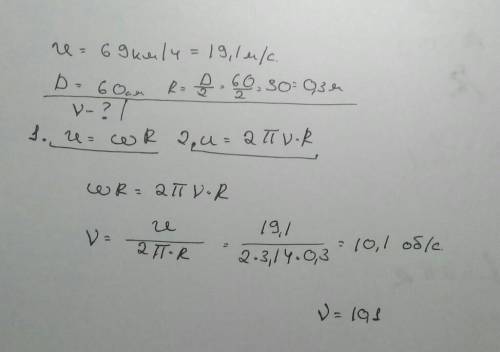 u = 69км/ч = 19,1м/с.
D = 60см R = D/2 = 60/2 = 30 = 0,3м
ν - ?
1. u = ωR 2. u = 2πν·R
ωR = 2πν·R
ν = u/2π·R = 19,1/2·3,14·0,3 = 10,1 об/с.
ν = 10,1